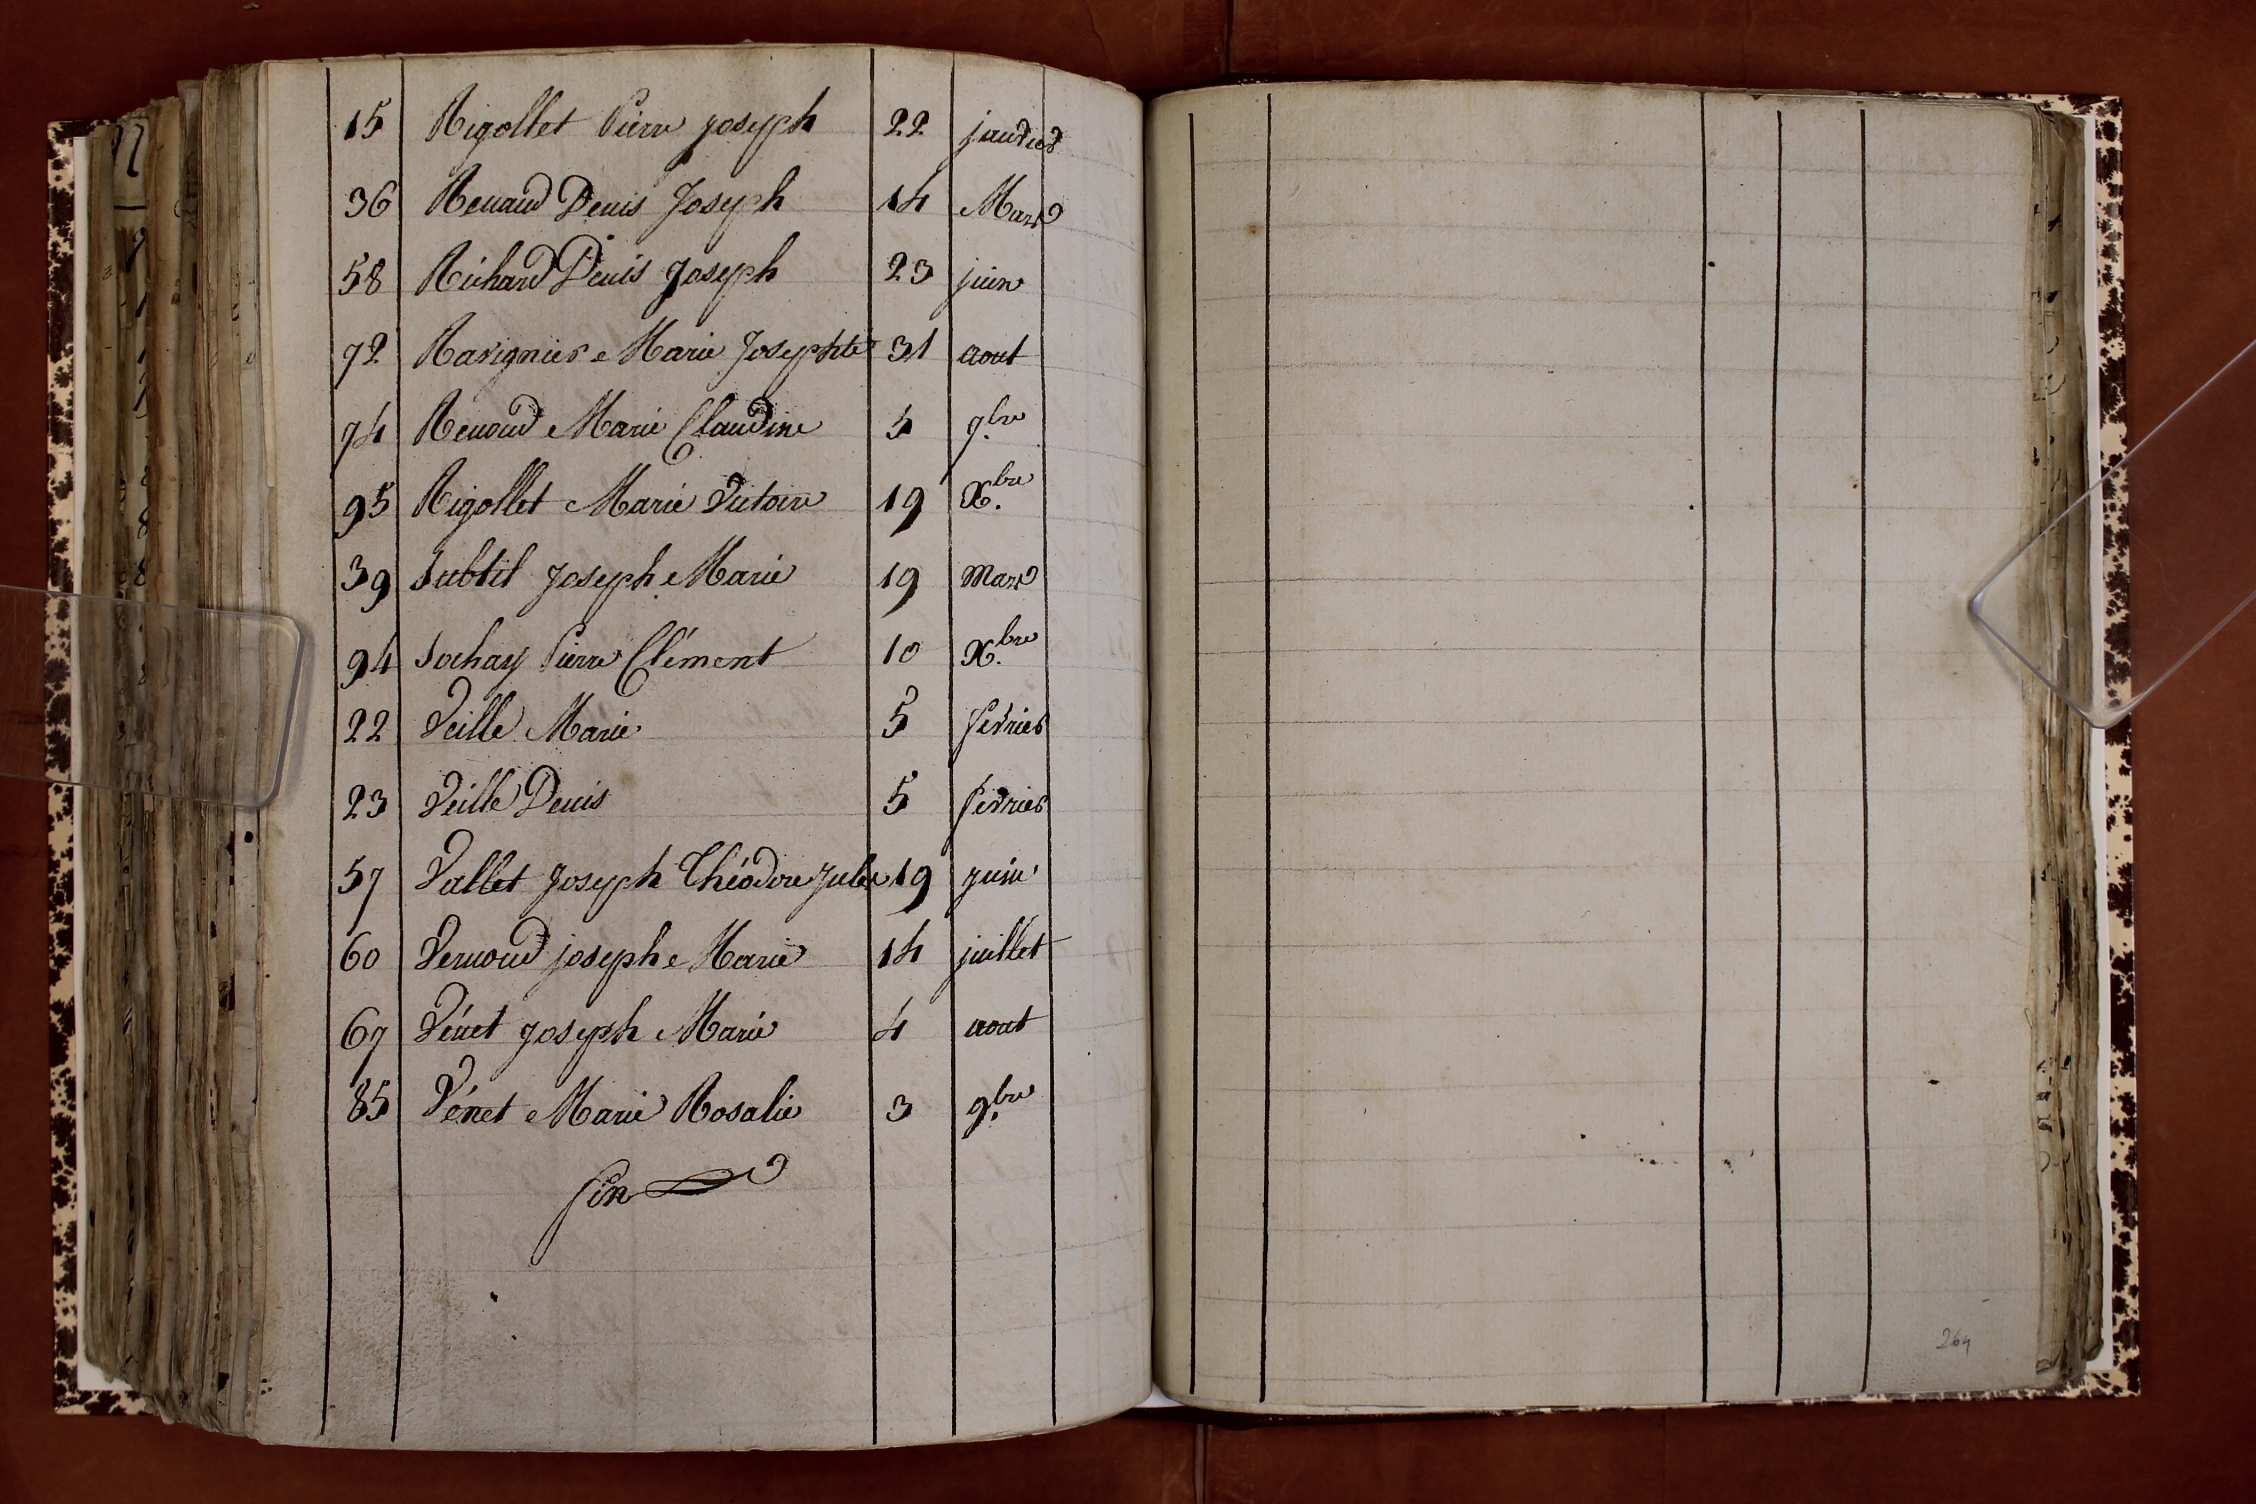 15 Rigollet Pierre Joseph 22 janvier
36 Renaud Denis Joseph 14 Mars
58 Richard Denis Joseph 23 juin
72 Ravignier Marie Josephte 31 aout
74 Renoud Marie Claudine 5 9.bre
95 Rigollet Marie Victoire 19 X.bre
39 Subtil Joseph Marie 19 Mars
94 Sochay Pierre Clément 10 X.bre
22 Veille Marie 5 fevrier
23 Veille Denis 5 fevrier
57 Vallet Joseph Théodore Jules 19 juin
60 Vernoud joseph Marie 14 juillet
67 Vénet Joseph Marie 4 aout
85 Vénet Marie Rosalie 3 9.bre
fin
264